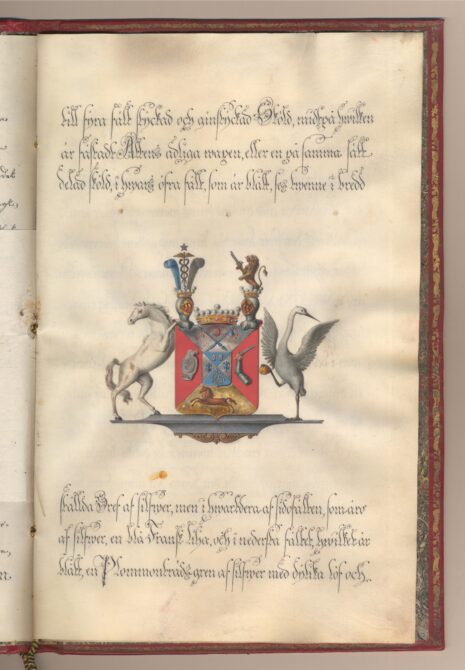 till fyra fält styckad och ginstyckad Sköld, midt på hwilken
är fästadt Ättens adliga wapen, eller en på samma sätt
delad sköld, i hwars öfra fält, som är blått, ses twenne i bredd
ställda Bref af silfwer, men i hwardera af sidofälten, som äro
af silfwer, en blå Fransk lilja, och i nedersta fältet, hwilket är
blått, en Plommonträds-gren af silfwer med dylika löf och